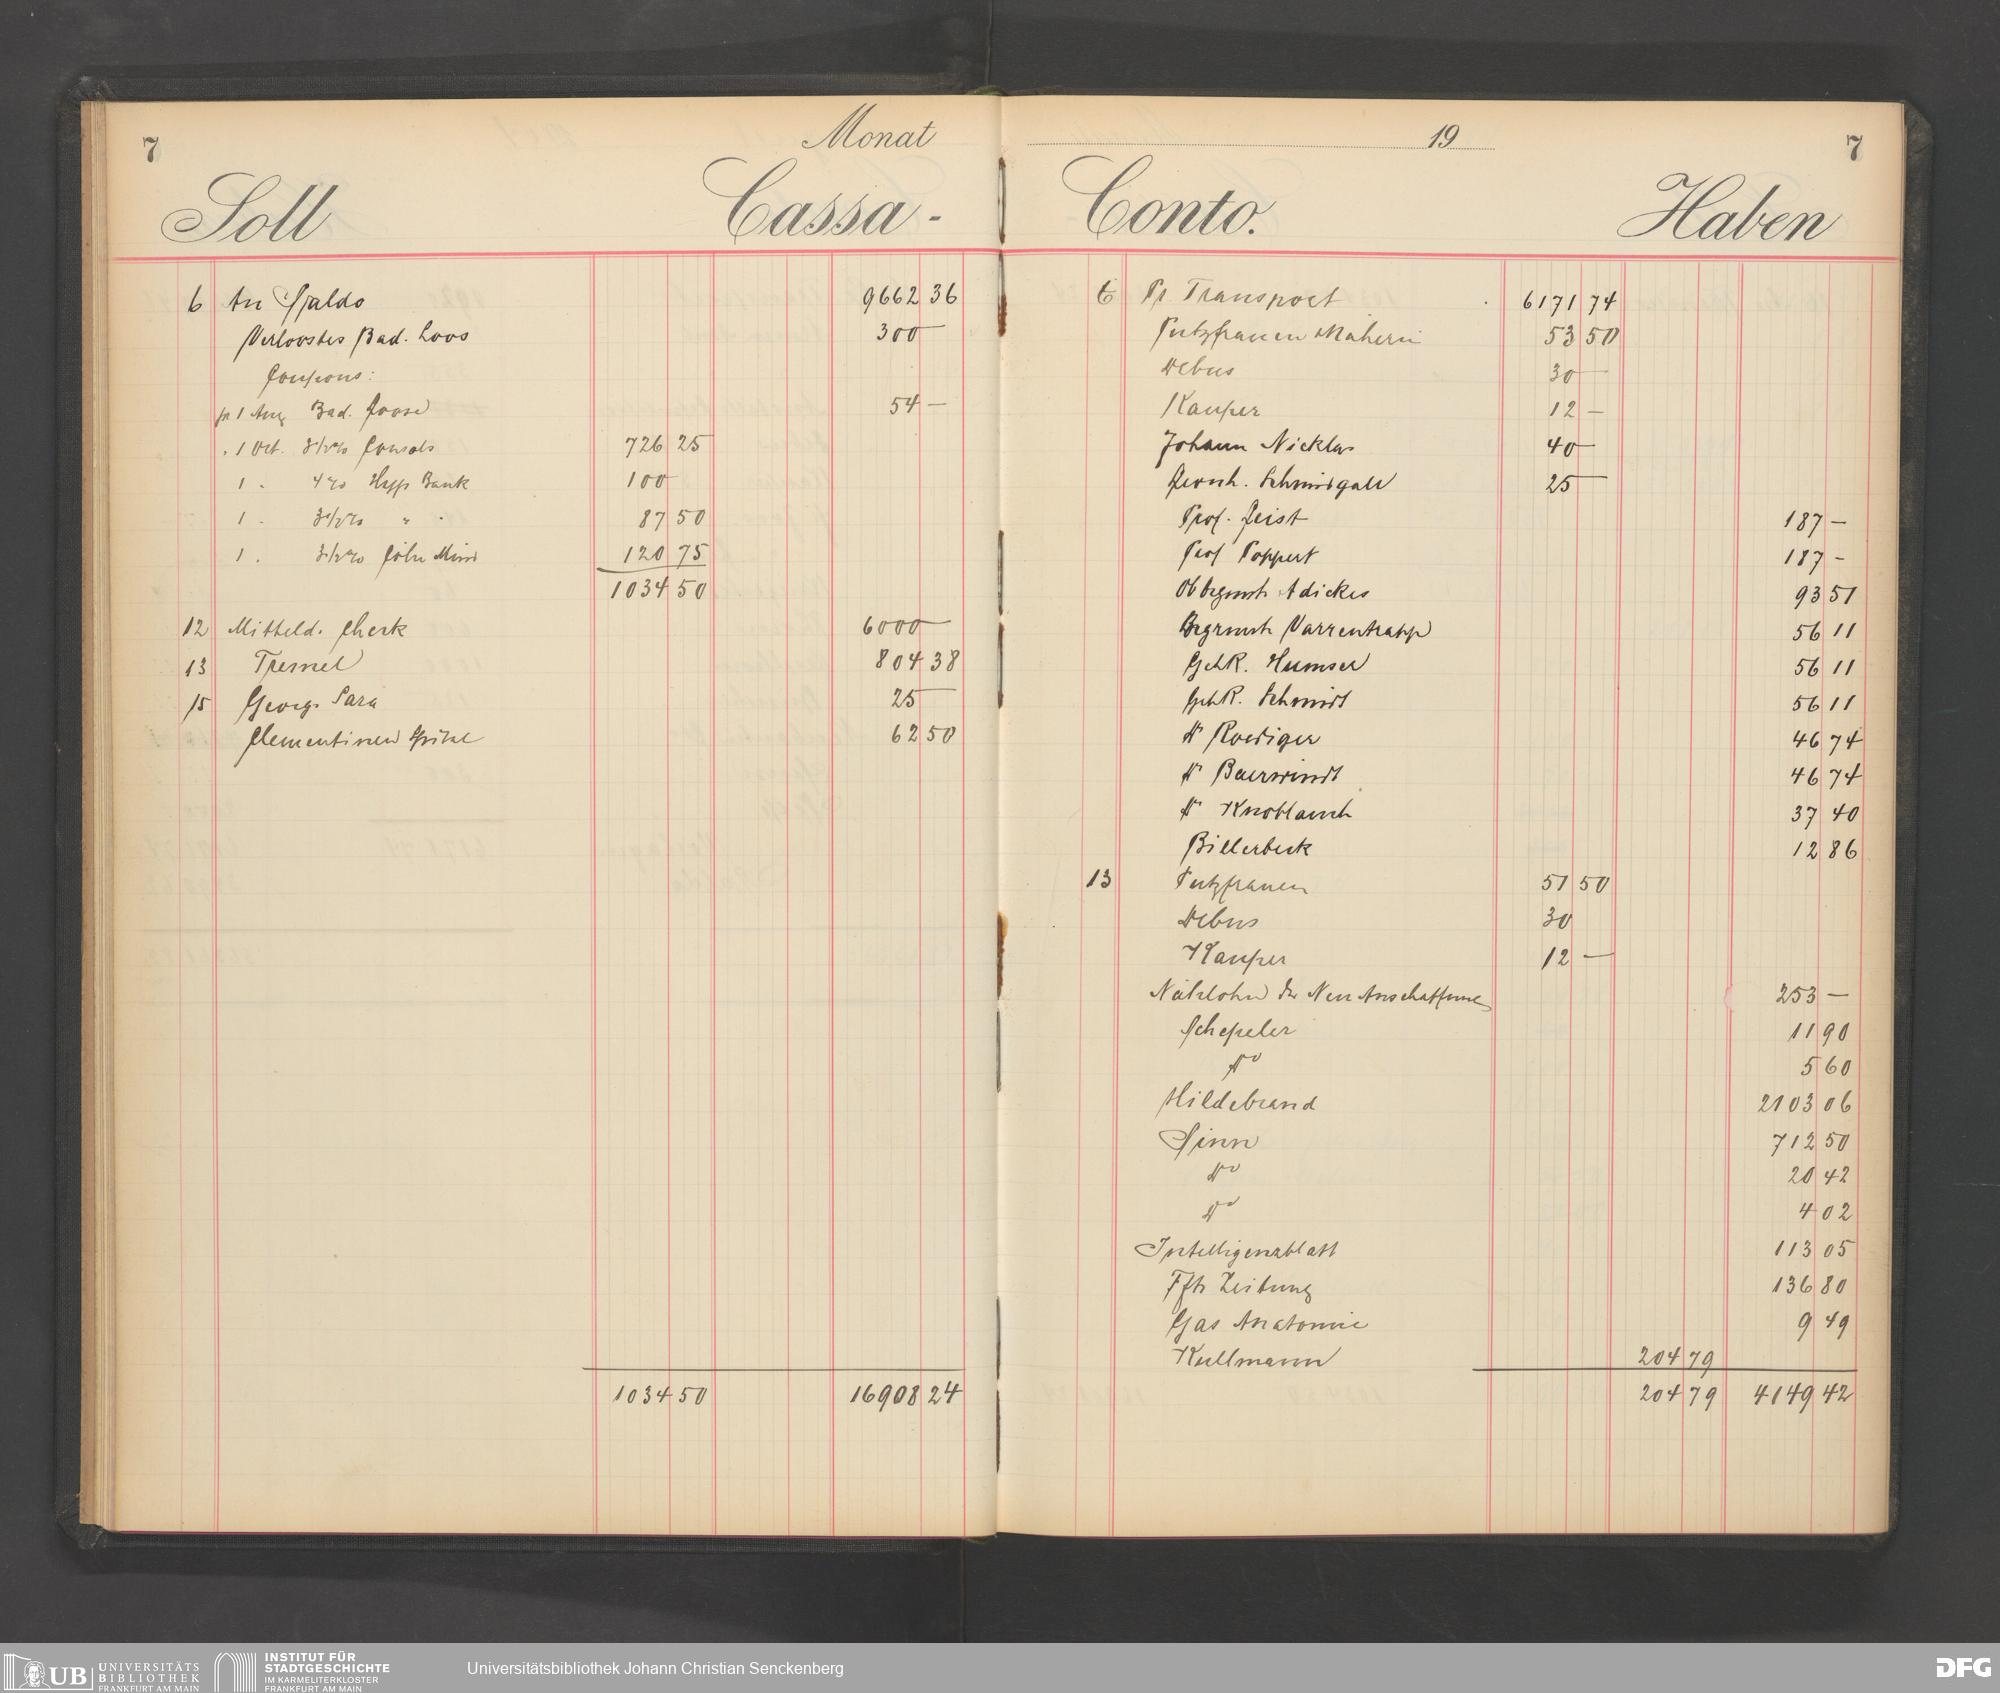 7
Monat
Soll
Cassa-
6 An Saldo 9662 36
Verloostes Bad. Loos 300 —
Coupons:
pr 1 Aug Bad. Loose 54 —
. 1 Oct. 3½% Consols 726 25
1 . 4% Hyp Bank 100 —
1 . 3½% " . 87 50
1 . 3½% Cöln Mind 120 75
1034 50
12 Mitteld. Check 6000 —
13 Tremel 804 38
15 Georg Sara 25 —
Clementinen Spital 62 50
1034 50 16908 24
19
7
Conto.
Haben
6 Pr Transport 6171 74
Putzfrauen Näherin 53 50
Debus 30 —
Kauper 12 —
Johann Nicklas 40 —
Leonh. Schmidgall 25 —
Prof. Geist 187 —
Prof Poppert 187 —
Obbrgmstr Adickes 93 51
Brgrmstr Varrentrapp 56 11
GehR. Humser 56 11
GehR. Schmidt 56 11
Dr Roediger 46 74
Dr Baerwindt 46 74
Dr Knoblauch 37 40
Billerbeck 12 86
13 Putzfrauen 51 50
Debus 30
Kauper 12 —
Nählohn der Neu Anschaffung 253 —
Schepeler 11 90
do 5 60
Hildebrand 2103 06
Sinn 712 50
do 20 42
do 4 02
Intelligenzblatt 113 05
Fftr Zeitung 136 80
Gas Anatomie 9 49
Kullmann 204 79
204 79 4149 42
UB UNIVERSITÄTS
BIBLIOTHEK
FRANKFURT AM MAIN
INSTITUT FÜR
STADTGESCHICHTE
IM KARMELITERKLOSTER
FRANKFURT AM MAIN
Universitätsbibliothek Johann Christian Senckenberg
DFG